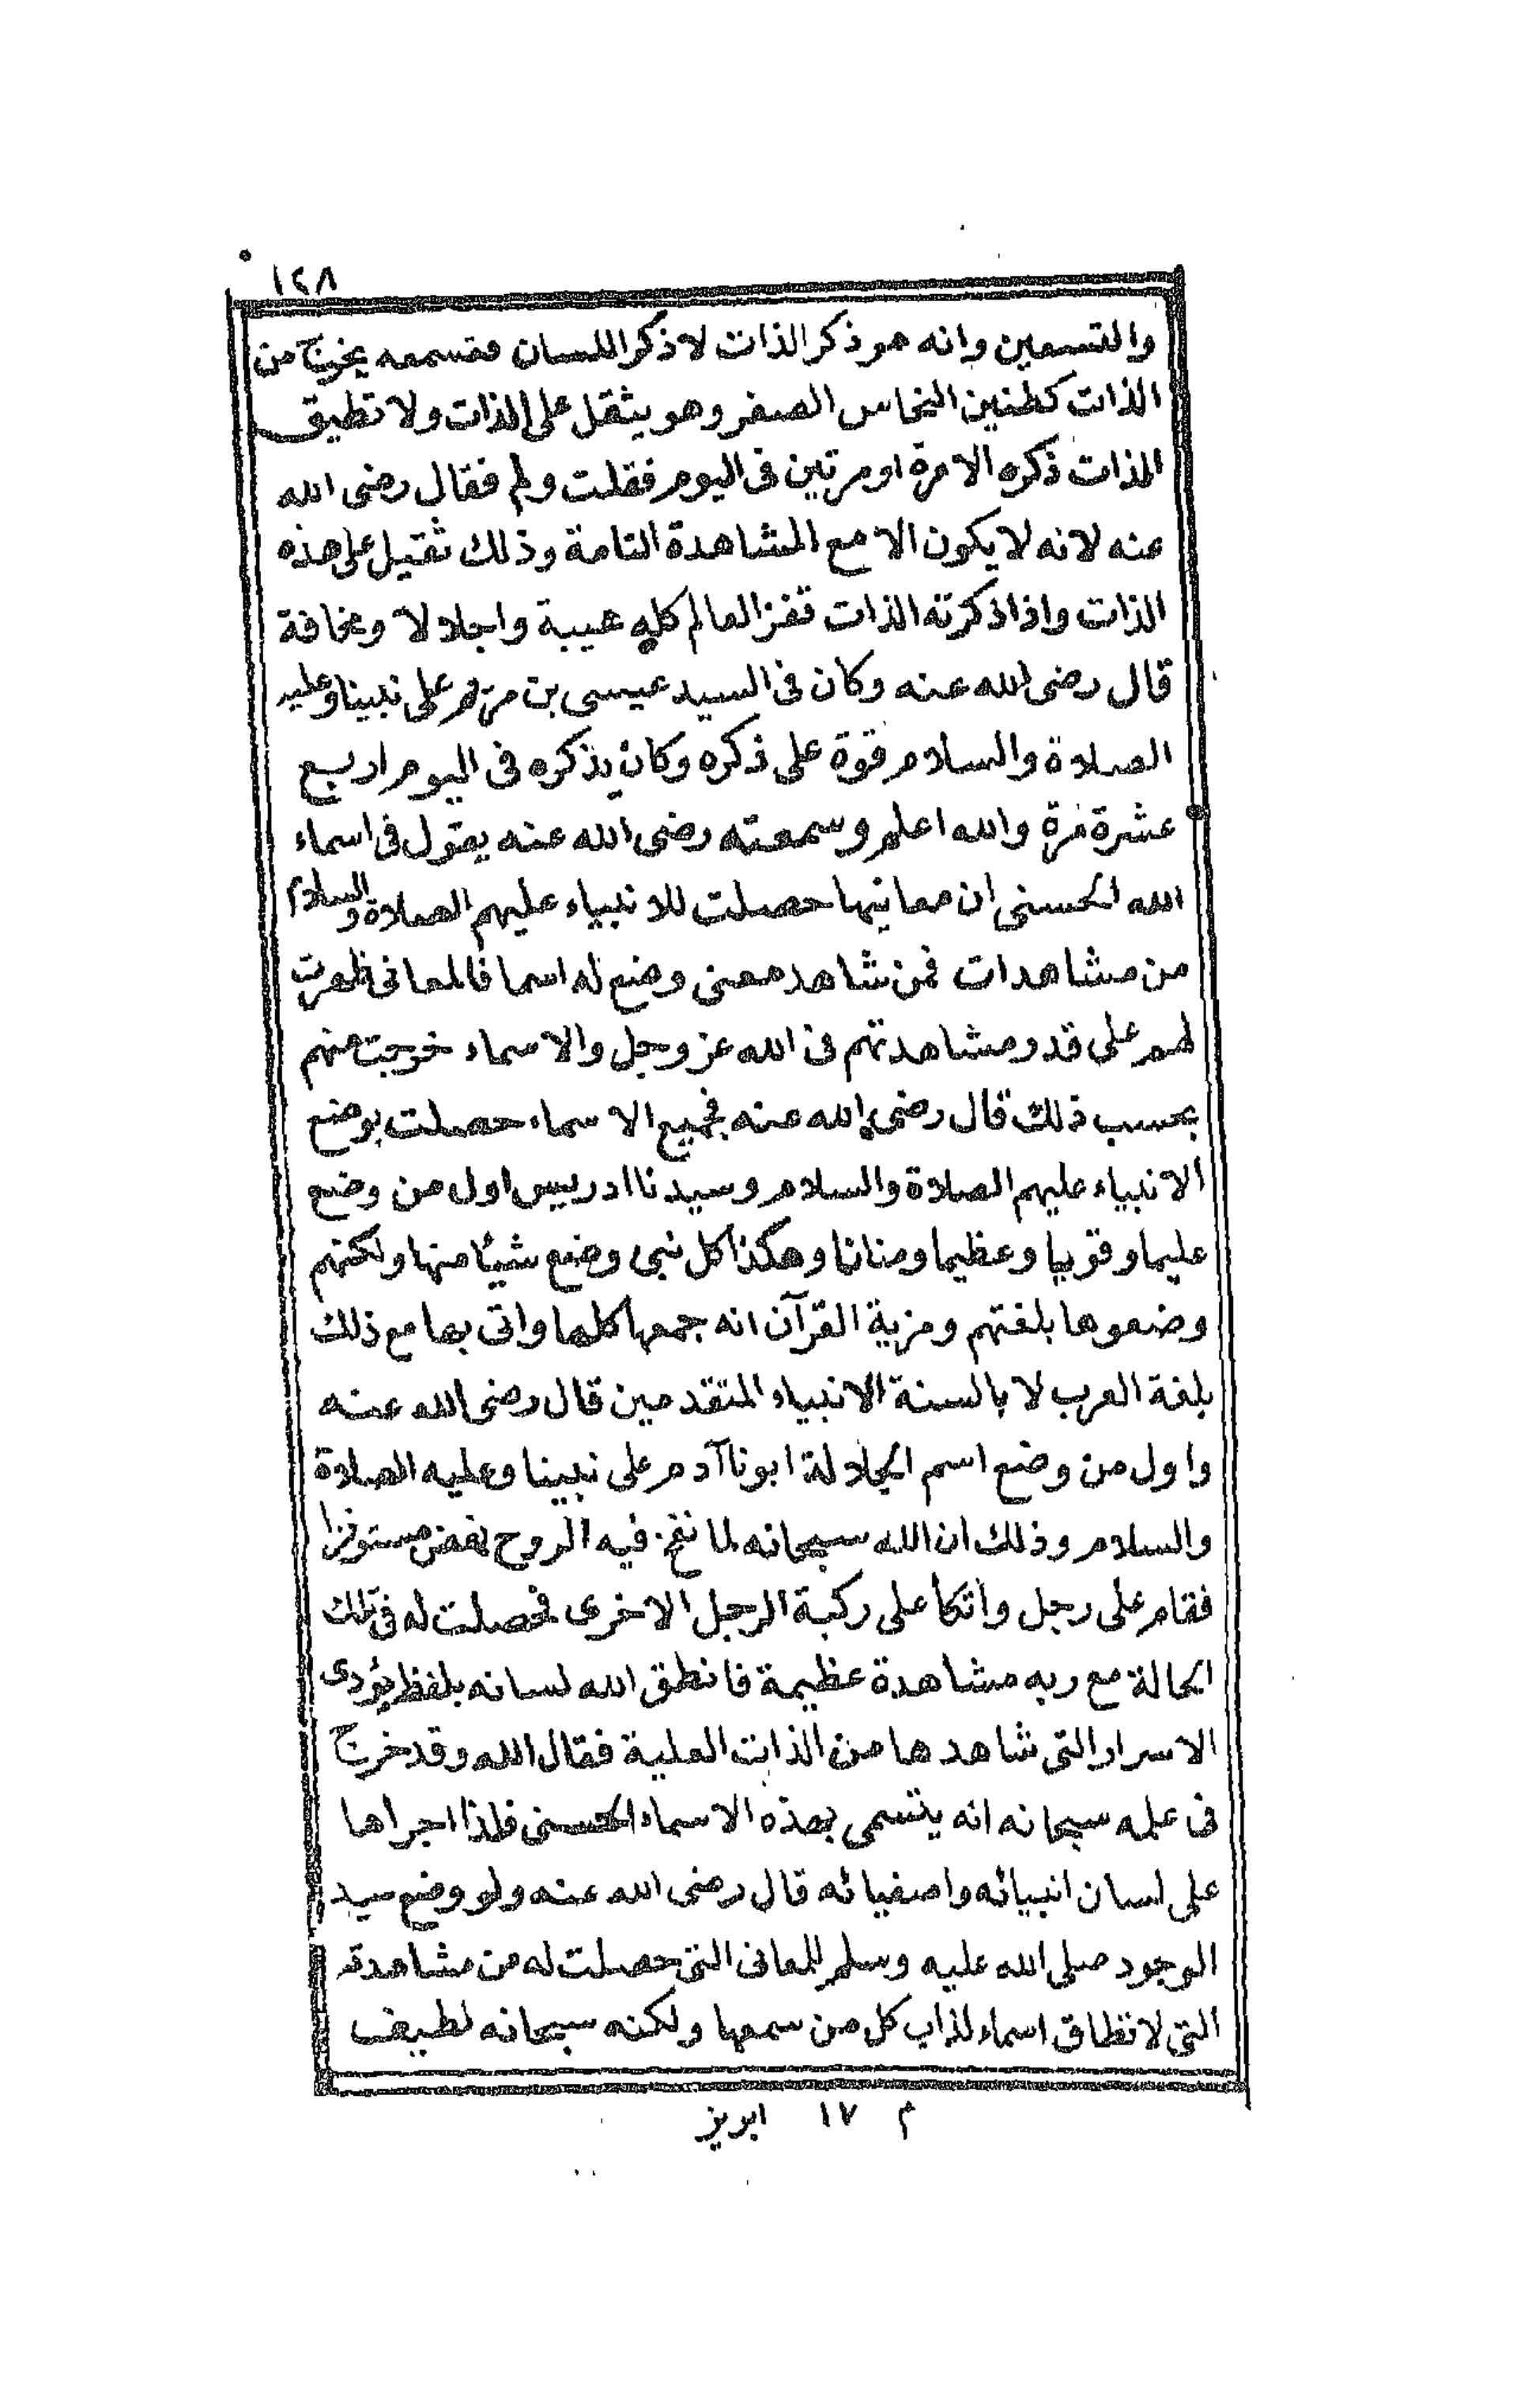 ١٢٨
والتسعين وانه هو ذكر الذات لا ذكر اللسان فتسمعه يخرج من
الذات كطنين النحاس الصفر وهو يثقل على الذات ولا تطيق
الذات ذكره الا مرة او مرتين فى اليوم فقلت ولم فقال رضى الله
عنه لانه لا يكون الا مع المشاهدة التامة وذلك ثقيل على هذه
الذات واذا ذكرته الذات تفز العالم كله هيبة واجلالا ومخافة
قال رضى الله عنه وكان فى السيد عيسى بن مريم على نبينا وعليه
الصلاة والسلام قوة على ذكره وكان يذكره فى اليوم اربع
عشرة مرة والله اعلم وسمعته رضى الله عنه يقول فى اسماء
الله الحسنى ان معانيها حصلت للانبياء عليهم الصلاة والسلام
من مشاهدات فمن شاهد معنى وضع له اسما فالمعانى ظهرت
لهم على قدر مشاهدتهم فى الله عز وجل والاسماء خرجت منهم
بحسب ذلك قال رضى الله عنه فجميع الاسماء حصلت بوضع
الانبياء عليهم الصلاة والسلام وسيدنا ادريس اول من وضع
عليما وقويا وعظيما ومنانا وهكذا كل نبى وضع شيئا منها ولكنهم
وضعوها بلغتهم ومزية القرآن انه جمعها كلها واتى بها مع ذلك
بلغة العرب لا بالسنة الانبياء المتقدمين قال رضى الله عنه
واول من وضع اسم الجلالة ابونا آدم على نبينا وعليه الصلاة
والسلام وذلك ان الله سبحانه لما نفخ فيه الروح نهض مستوفزا
فقام على رجل واتكأ على ركبة الرجل الاخرى فحصلت له فى تلك
الحالة مع ربه مشاهدة عظيمة فانطق الله لسانه بلفظ يؤدى
الاسرار التى شاهدها من الذات العلية فقال الله وقد خرج
فى علمه سبحانه انه يتسمى بهذه الاسماء الحسنى فلذا اجراها
على لسان انبيائه واصفيائه قال رضى الله عنه ولو وضع سيد
الوجود صلى الله عليه وسلم للمعانى التى حصلت له من مشاهدته
التى لا تطاق اسماء لذاب كل من سمعها ولكنه سبحانه لطيف
م ١٧ ابريز